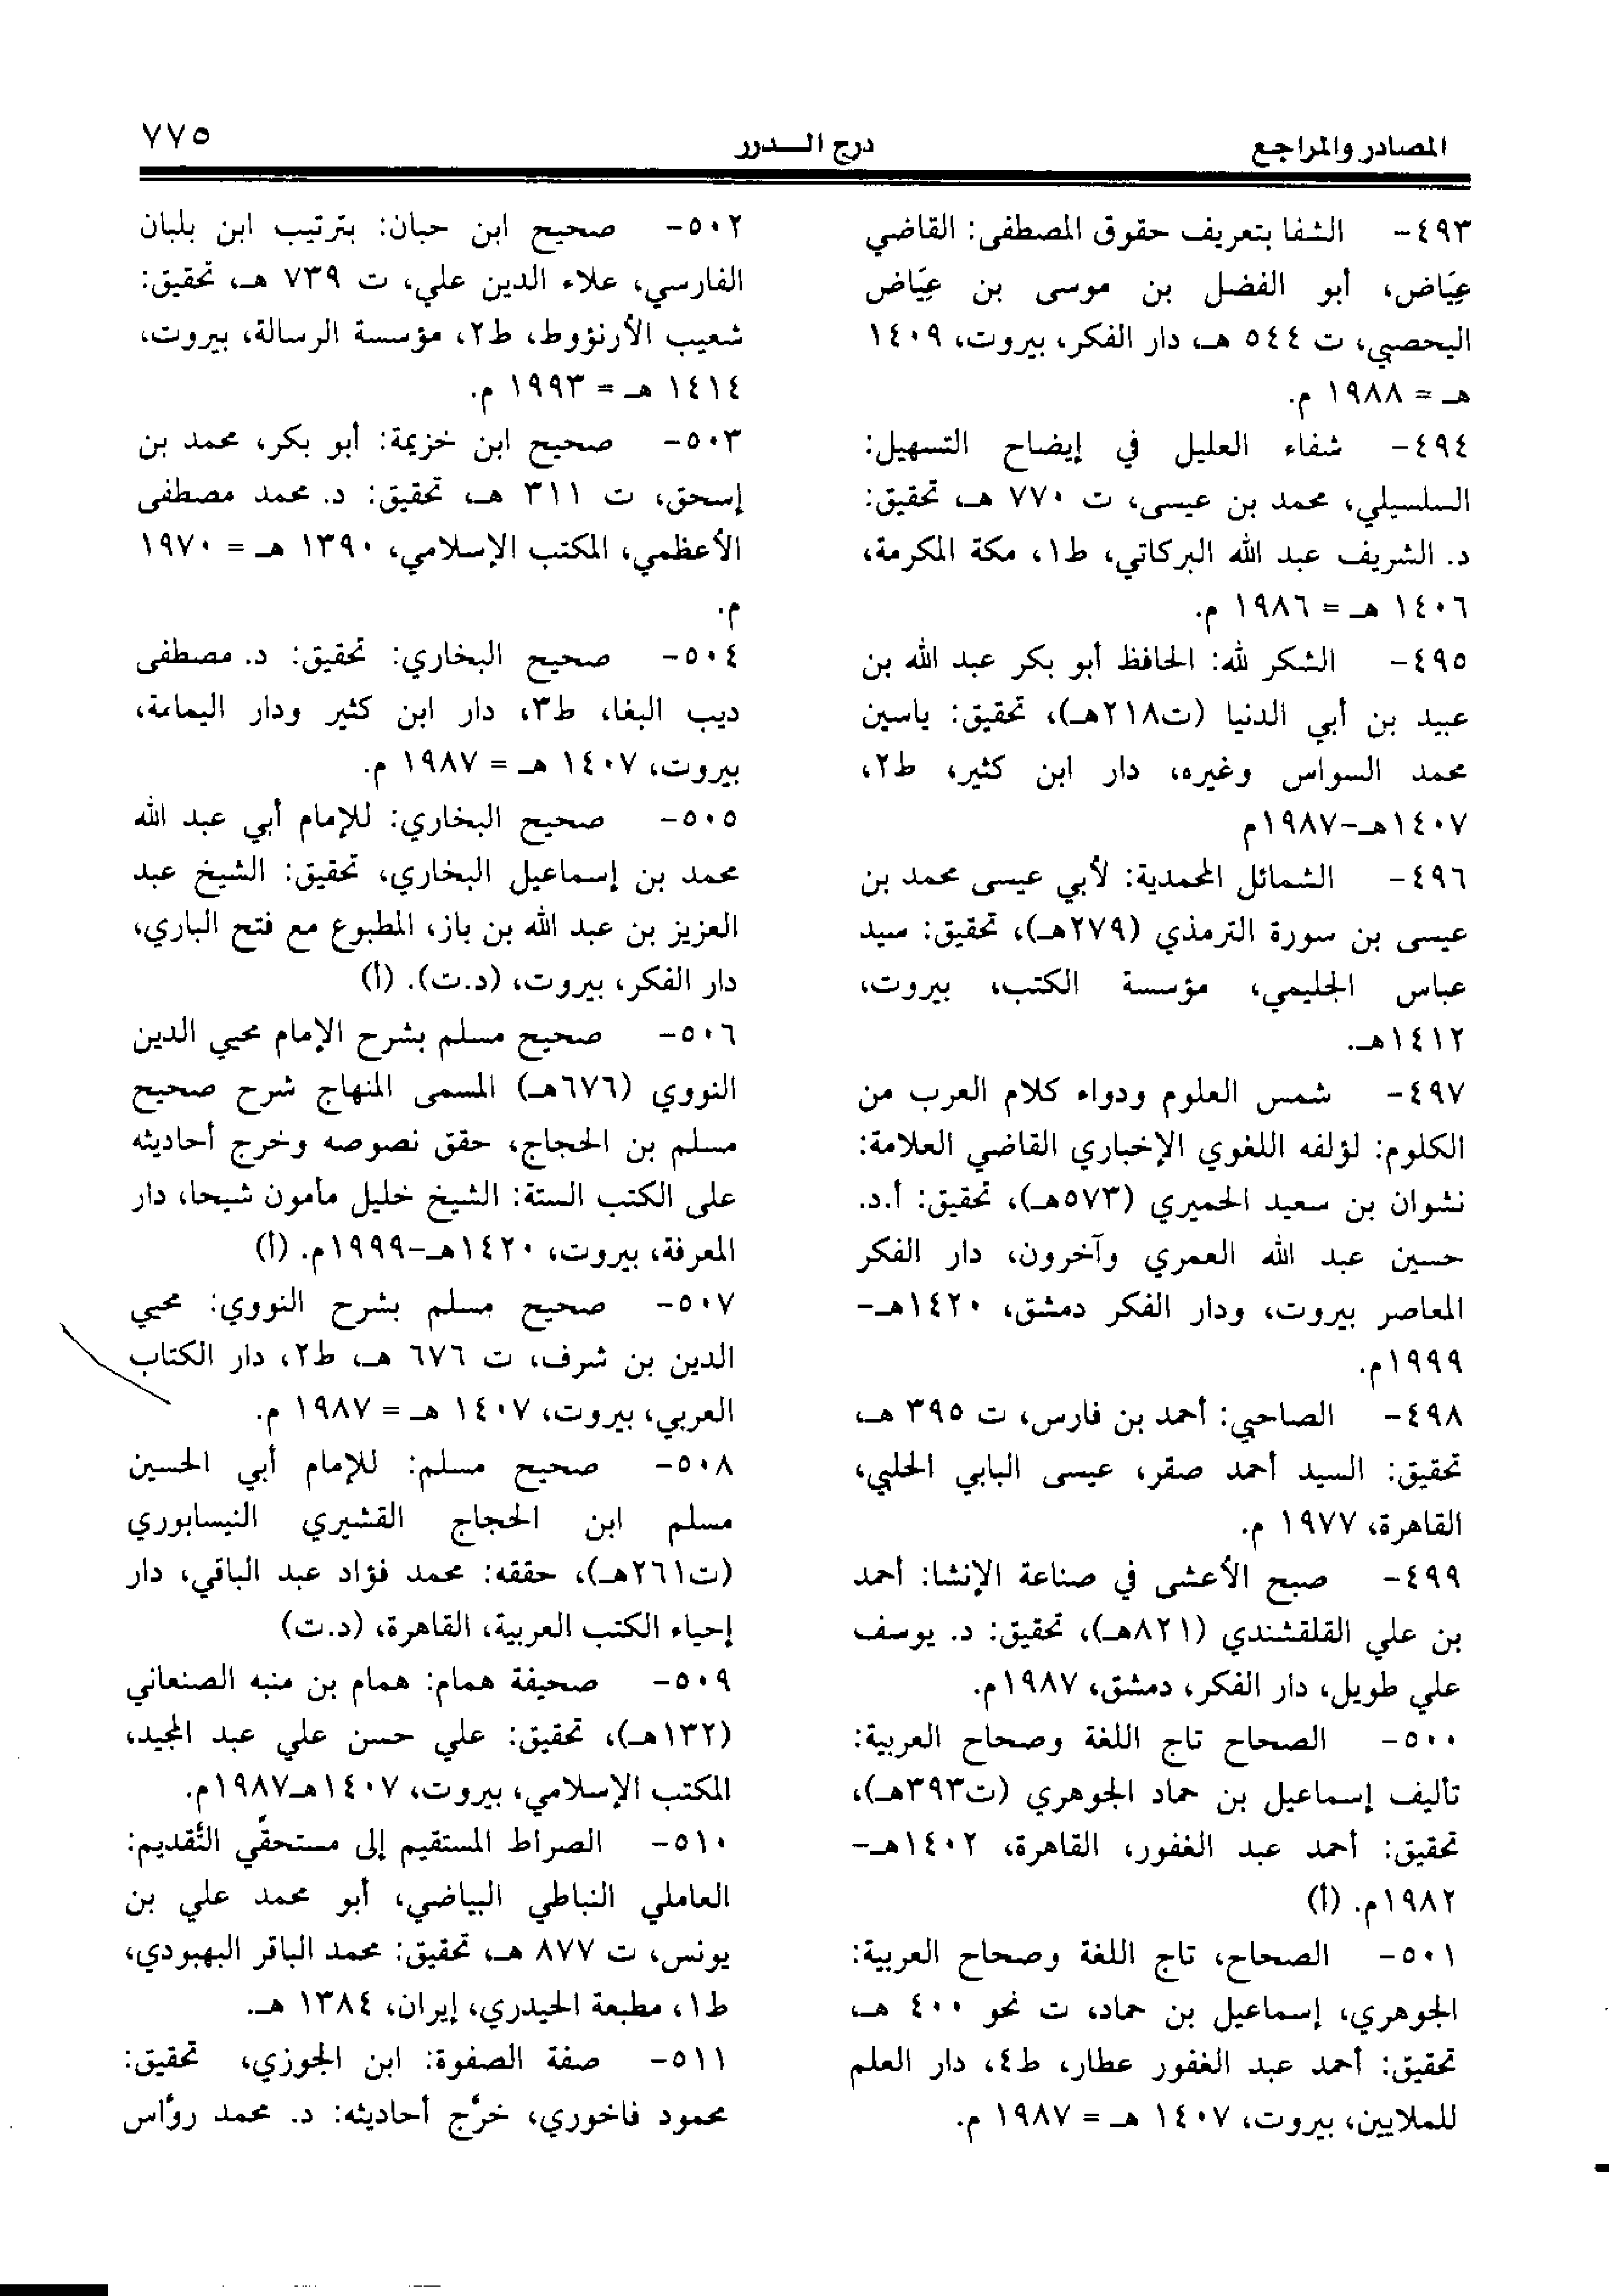 المصادر والمراجع
درج الـدرر
٧٧٥
٤٩٣- الشفا بتعريف حقوق المصطفى: القاضي
عِيَاض، أبو الفضل بن موسى بن عِيَاض
اليحصبي، ت ٥٤٤ هـ، دار الفكر، بيروت، ١٤٠٩
هـ = ١٩٨٨ م.
٤٩٤- شفاء العليل في إيضاح التسهيل:
السلسيلي، محمد بن عيسى، ت ٧٧٠ هـ، تحقيق:
د. الشريف عبد الله البركاتي، ط١، مكة المكرمة،
١٤٠٦ هـ = ١٩٨٦ م.
٤٩٥- الشكر لله: الحافظ أبو بكر عبد الله بن
عبيد بن أبي الدنيا (ت٢١٨هـ)، تحقيق: ياسين
محمد السواس وغيره، دار ابن كثير، ط٢،
١٤٠٧هـ-١٩٨٧م
٤٩٦- الشمائل المحمدية: لأبي عيسى محمد بن
عيسى بن سورة الترمذي (٢٧٩هـ)، تحقيق: سيد
عباس الجليمي، مؤسسة الكتب، بيروت،
١٤١٢هـ.
٤٩٧- شمس العلوم ودواء كلام العرب من
الكلوم: لؤلفه اللغوي الإخباري القاضي العلامة:
نشوان بن سعيد الحميري (٥٧٣هـ)، تحقيق: أ.د.
حسين عبد الله العمري وآخرون، دار الفكر
المعاصر بيروت، ودار الفكر دمشق، ١٤٢٠هـ-
١٩٩٩م.
٤٩٨- الصاحبي: أحمد بن فارس، ت ٣٩٥ هـ،
تحقيق: السيد أحمد صقر، عيسى البابي الحلبي،
القاهرة، ١٩٧٧ م.
٤٩٩- صبح الأعشى في صناعة الإنشا: أحمد
بن علي القلقشندي (٨٢١هـ)، تحقيق: د. يوسف
علي طويل، دار الفكر، دمشق، ١٩٨٧م.
٥٠٠- الصحاح تاج اللغة وصحاح العربية:
تأليف إسماعيل بن حماد الجوهري (ت٣٩٣هـ)،
تحقيق: أحمد عبد الغفور، القاهرة، ١٤٠٢هـ-
١٩٨٢م. (أ)
٥٠١- الصحاح، تاج اللغة وصحاح العربية:
الجوهري، إسماعيل بن حماد، ت نحو ٤٠٠ هـ،
تحقيق: أحمد عبد الغفور عطار، ط٤، دار العلم
للملايين، بيروت، ١٤٠٧ هـ = ١٩٨٧ م.
٥٠٢- صحيح ابن حبان: بترتيب ابن بلبان
الفارسي، علاء الدين علي، ت ٧٣٩ هـ، تحقيق:
شعيب الأرنؤوط، ط٢، مؤسسة الرسالة، بيروت،
١٤١٤ هـ = ١٩٩٣ م.
٥٠٣- صحيح ابن خزيمة: أبو بكر، محمد بن
إسحق، ت ٣١١ هـ، تحقيق: د. محمد مصطفى
الأعظمي، المكتب الإسلامي، ١٣٩٠ هـ = ١٩٧٠
م.
٥٠٤- صحيح البخاري: تحقيق: د. مصطفى
ديب البغا، ط٣، دار ابن كثير ودار اليمامة،
بيروت، ١٤٠٧ هـ = ١٩٨٧ م.
٥٠٥- صحيح البخاري: للإمام أبي عبد الله
محمد بن إسماعيل البخاري، تحقيق: الشيخ عبد
العزيز بن عبد الله بن باز، المطبوع مع فتح الباري،
دار الفكر، بيروت، (د.ت). (أ)
٥٠٦- صحيح مسلم بشرح الإمام محيي الدين
النووي (٦٧٦هـ) المسمى المنهاج شرح صحيح
مسلم بن الحجاج، حقق نصوصه وخرج أحاديثه
على الكتب الستة: الشيخ خليل مأمون شيحا، دار
المعرفة، بيروت، ١٤٢٠هـ-١٩٩٩م. (أ)
٥٠٧- صحيح مسلم بشرح النووي: محيي
الدين بن شرف، ت ٦٧٦ هـ، ط٢، دار الكتاب
العربي، بيروت، ١٤٠٧ هـ = ١٩٨٧ م.
٥٠٨- صحيح مسلم: للإمام أبي الحسين
مسلم ابن الحجاج القشيري النيسابوري
(ت٢٦١هـ)، حققه: محمد فؤاد عبد الباقي، دار
إحياء الكتب العربية، القاهرة، (د.ت)
٥٠٩- صحيفة همام: همام بن منبه الصنعاني
(١٣٢هـ)، تحقيق: علي حسن علي عبد المجيد،
المكتب الإسلامي، بيروت، ١٤٠٧هـ١٩٨٧م.
٥١٠- الصراط المستقيم إلى مستحقّي التّقديم:
العاملي النباطي البياضي، أبو محمد علي بن
يونس، ت ٨٧٧ هـ، تحقيق: محمد الباقر البهبودي،
ط١، مطبعة الحيدري، إيران، ١٣٨٤ هـ.
٥١١- صفة الصفوة: ابن الجوزي، تحقيق:
محمود فاخوري، خرّج أحاديثه: د. محمد روّاس